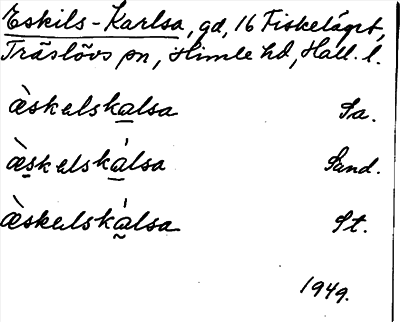 Eskils-Karlsa, gd, 16 Fiskeläget,
Träslövs sn, Himle hd, Hall. l.
æ̀skelskalsa Sa.
æ̀skelská̱lsa Sand.
æ̀skelská̰lsa St.
1949.